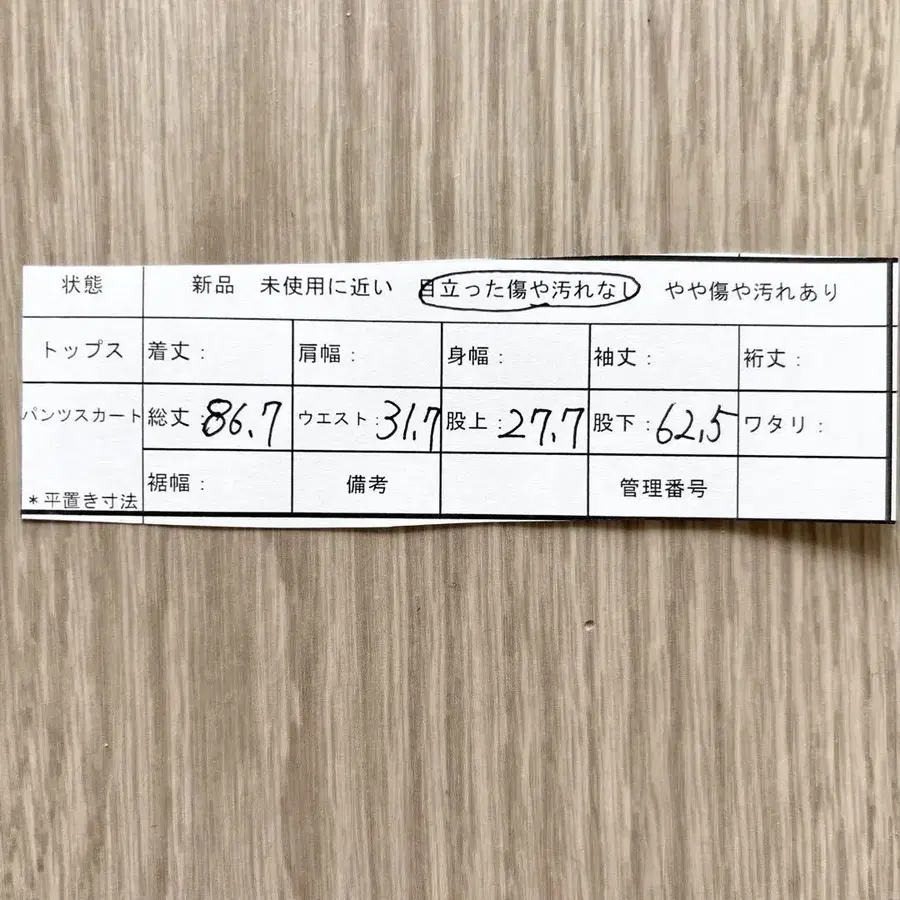 状態 新品 未使用に近い 目立った傷や汚れなし やや傷や汚れあり
トップス 着丈: 肩幅: 身幅: 袖丈: 裄丈:
パンツスカート 総丈:86.7 ウエスト:31.7 股上:27.7 股下:62.5 ワタリ:
*平置き寸法 裾幅: 備考 管理番号